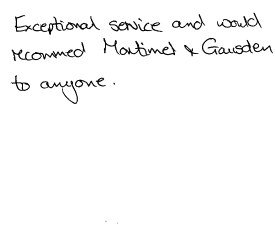 Exceptional service and would
recommed Mortimer & Gausden
to anyone.